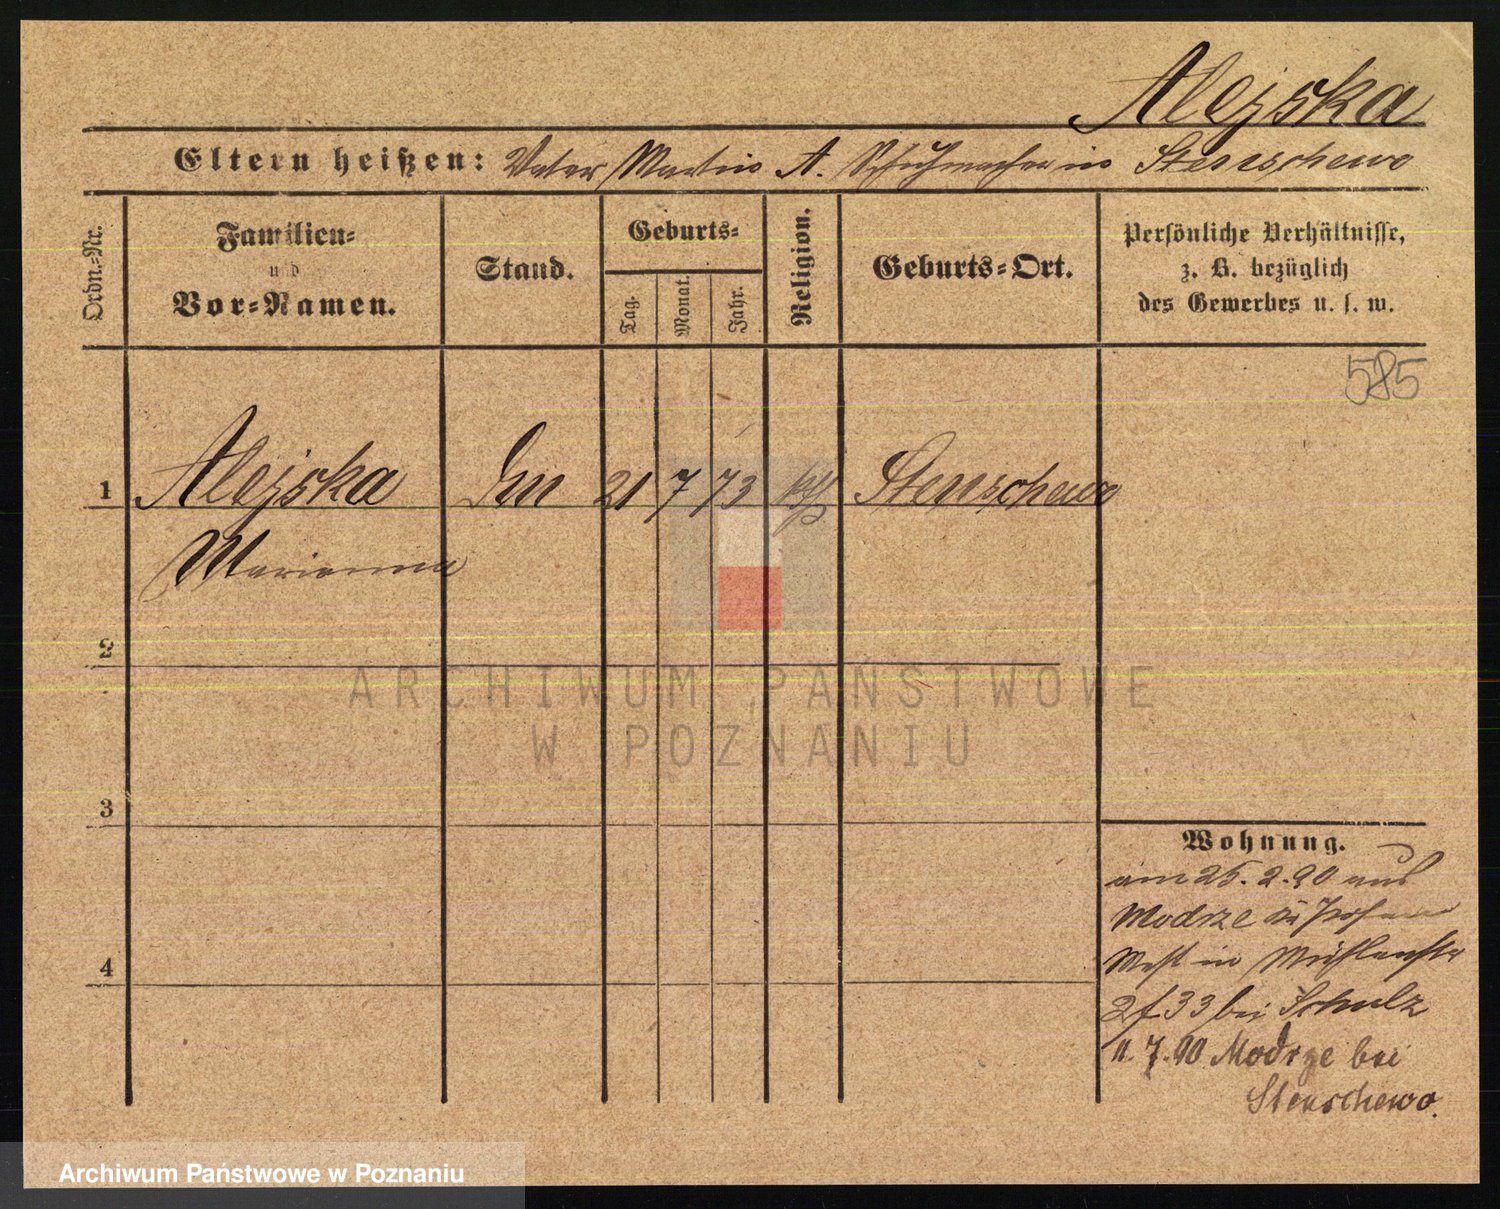 Alejska
Eltern heißen: Vater Martin A. Schuhmacher in Stenschewo
Ordn.-Nr.
Familien-
und
Vor-Namen.
Stand.
Geburts-
Tag.
Monat.
Jahr.
Religion.
Geburts-Ort.
Persönliche Verhältnisse,
z. B. bezüglich
des Gewerbes u. s. w.
585
1 Alejska 21 7 73 kth Stenschewo
Marianna
2
ARCHIWUM PAŃSTWOWE
W POZNANIU
3
4
Wohnung.
am 26. 2. 90 aus
Modrze zu
in Mühlenstr
33 bei Schulz
11. 7. 90 Modrze bei
Stenschewo.
Archiwum Państwowe w Poznaniu